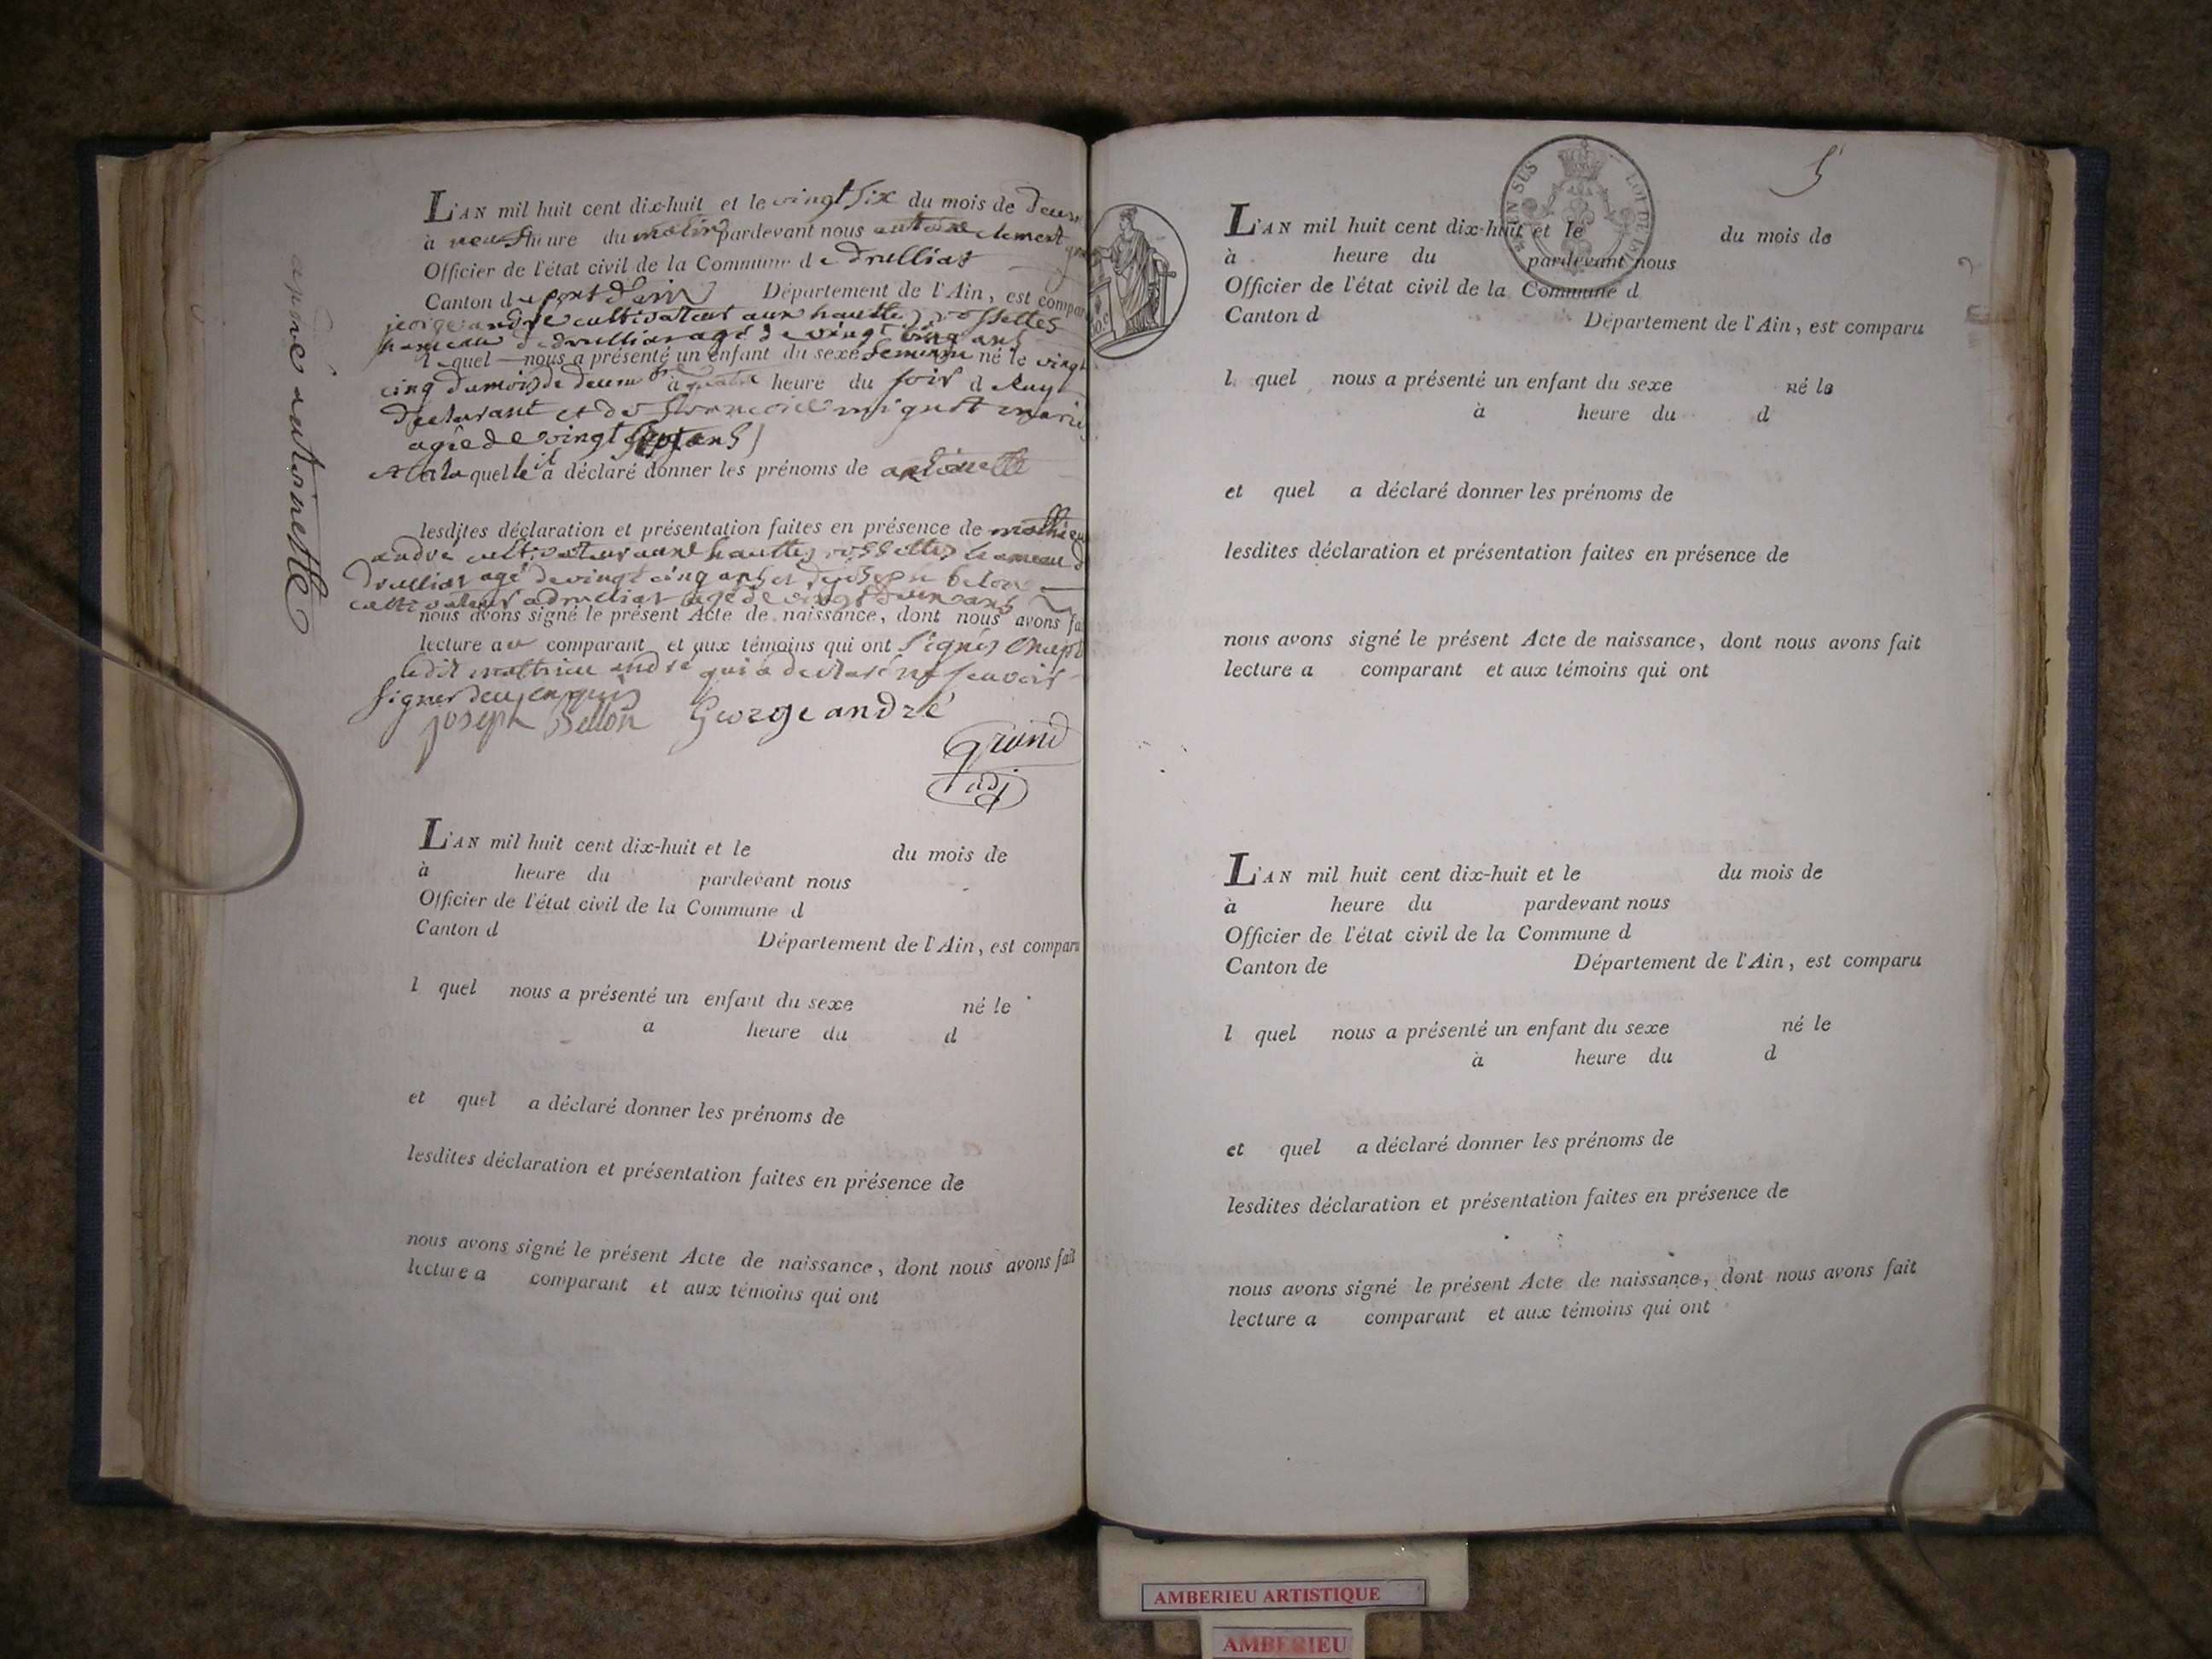 andré antoinette
L'AN mil huit cent dix-huit et le vingt six du mois de
à neuf heure du matin pardevant nous antoine clement
Officier de l'état civil de la Commune de druillat
Canton de pont d'ain Département de l'Ain, est compar
jeorge andré cultivateur aux hauttes rossettes
hameau de druillat agé de vingt cinq ans
lequel nous a présenté un enfant du sexe feminin né le vingt
cinq du mois de à quatre heure du soir de luy
declarant et de mariée
agée de vingt sept ans
et a laquelle il a déclaré donner les prénoms de antoinette
lesdites déclaration et présentation faites en présence de mathieu
andré cultivateur aux hauttes rossettes hameau d
druillat agé de vingt cinq ans et de joseph belon
cultivateur a druillat agé de vingt ans
nous avons signé le présent Acte de naissance, dont nous avons fa
lecture au comparant et aux témoins qui ont signés
ledit mathieu andré qui a declaré ne scavoir
signer de ce enquis
joseph Bellon George andré
grand
adj
L'AN mil huit cent dix-huit et le du mois de
à heure du pardevant nous
Officier de l'état civil de la Commune d
Canton d
Département de l'Ain, est comparu
l quel nous a présenté un enfant du sexe né le
a heure du d
et quel a déclaré donner les prénoms de
lesdites déclaration et présentation faites en présence de
nous avons signé le présent Acte de naissance, dont nous avons fait
lecture a comparant et aux témoins qui ont
5
L'AN mil huit cent dix-huit et le du mois de
à heure du pardevant nous
Officier de l'état civil de la Commune d
Canton d Département de l'Ain, est comparu
l quel nous a présenté un enfant du sexe né le
à heure du d
et quel a déclaré donner les prénoms de
lesdites déclaration et présentation faites en présence de
nous avons signé le présent Acte de naissance, dont nous avons fait
lecture a comparant et aux témoins qui ont
L'AN mil huit cent dix-huit et le du mois de
à heure du pardevant nous
Officier de l'état civil de la Commune d
Canton de Département de l'Ain, est comparu
l quel nous a présenté un enfant du sexe né le
à heure du d
et quel a déclaré donner les prénoms de
lesdites déclaration et présentation faites en présence de
nous avons signé le présent Acte de naissance, dont nous avons fait
lecture a comparant et aux témoins qui ont
AMBERIEU ARTISTIQUE
AMBERIEU